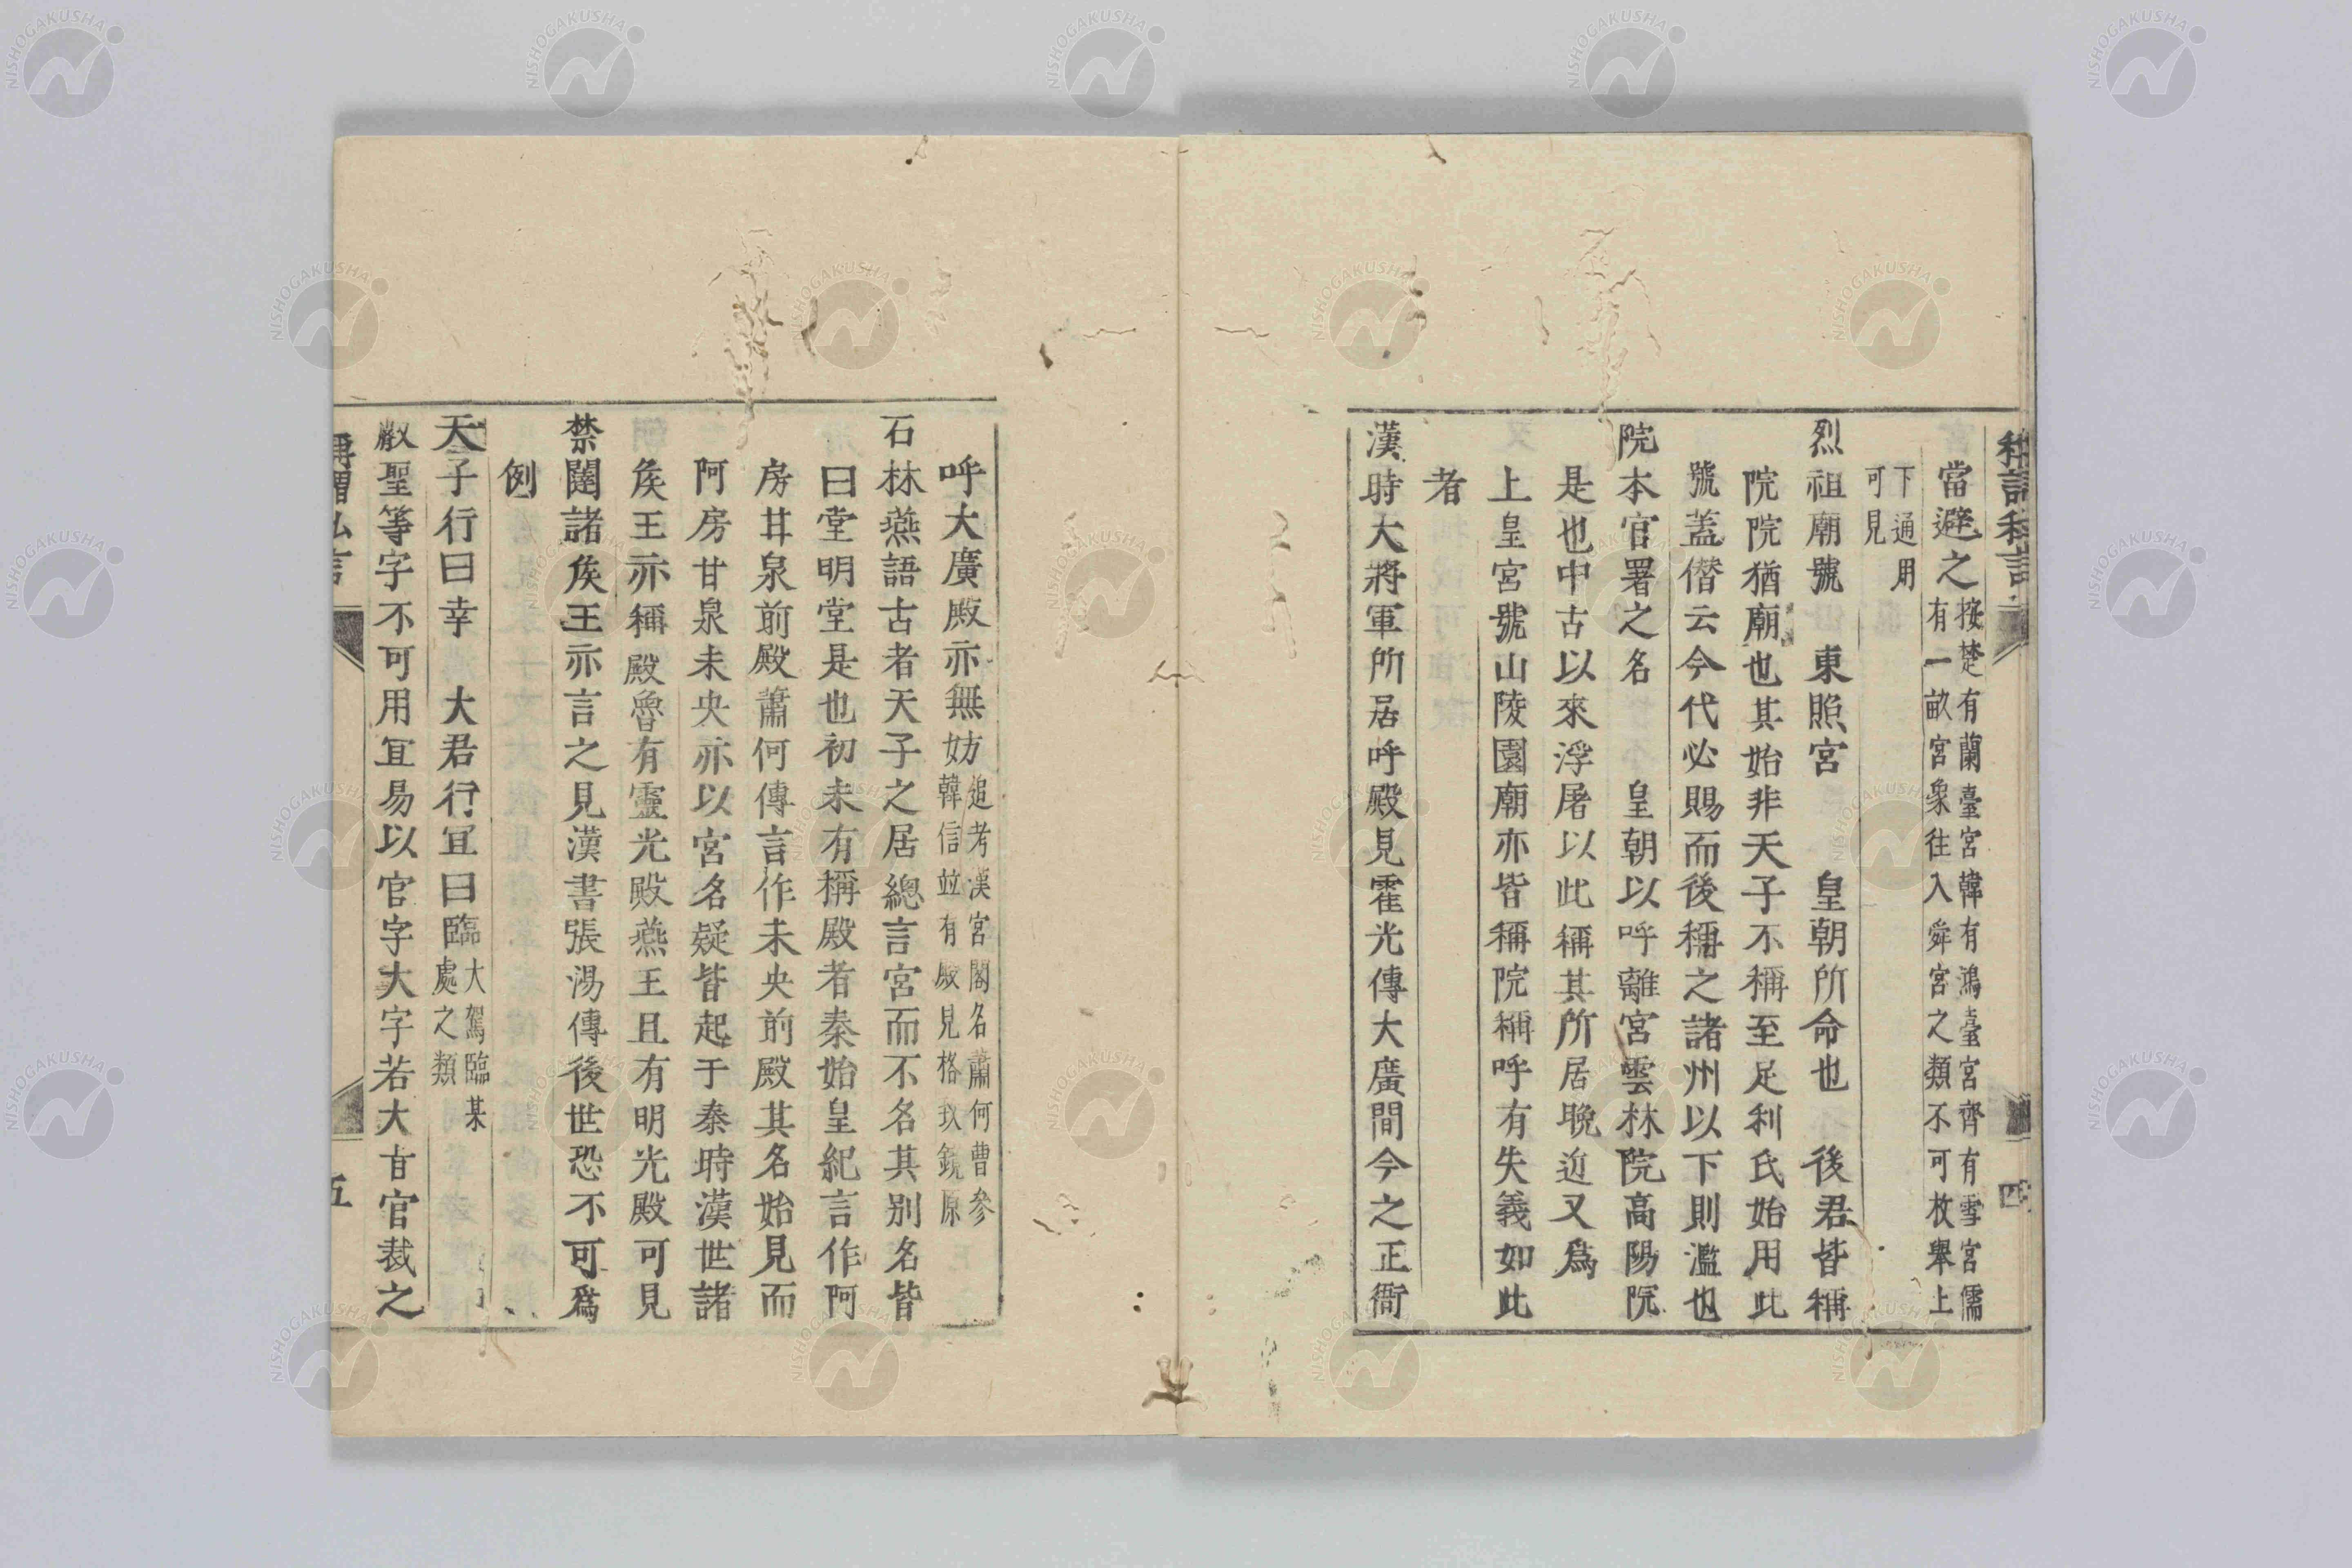 稱謂私言
四
當避之按楚有蘭臺宮韓有鴻臺宮齊有雪宮儒
有一畝宮象往入舜宮之類不可枚舉上
下通用
可見
烈祖廟號　東照宮　　皇朝所命也　後君皆稱
院院猶廟也其始非天子不稱至足利氏始用此
號蓋僭云今代必賜而後稱之諸州以下則濫也
院本官署之名　　皇朝以呼離宮雲林院高陽院
是也中古以來浮屠以此稱其所居晚近又爲
上皇宮號山陵園廟亦皆稱院稱呼有失義如此
者
漢時大將軍所居呼殿見霍光傳大廣間今之正衙
呼大廣殿亦無妨追考漢宮閣名蕭何曹參
韓信並有殿見格致鏡原
石林燕語古者天子之居總言宮而不名其別名皆
曰堂明堂是也初未有稱殿者秦始皇紀言作阿
房甘泉前殿蕭何傳言作未央前殿其名始見而
阿房甘泉未央亦以宮名疑皆起于秦時漢世諸
矦王亦稱殿魯有靈光殿燕王且有明光殿可見
禁闥諸矦王亦言之見漢書張湯傳後世恐不可爲
例
天子行曰幸　大君行冝曰臨大駕臨某
處之類
嚴聖等字不可用冝易以官字大字若大甘官裁之
稱謂私言
五